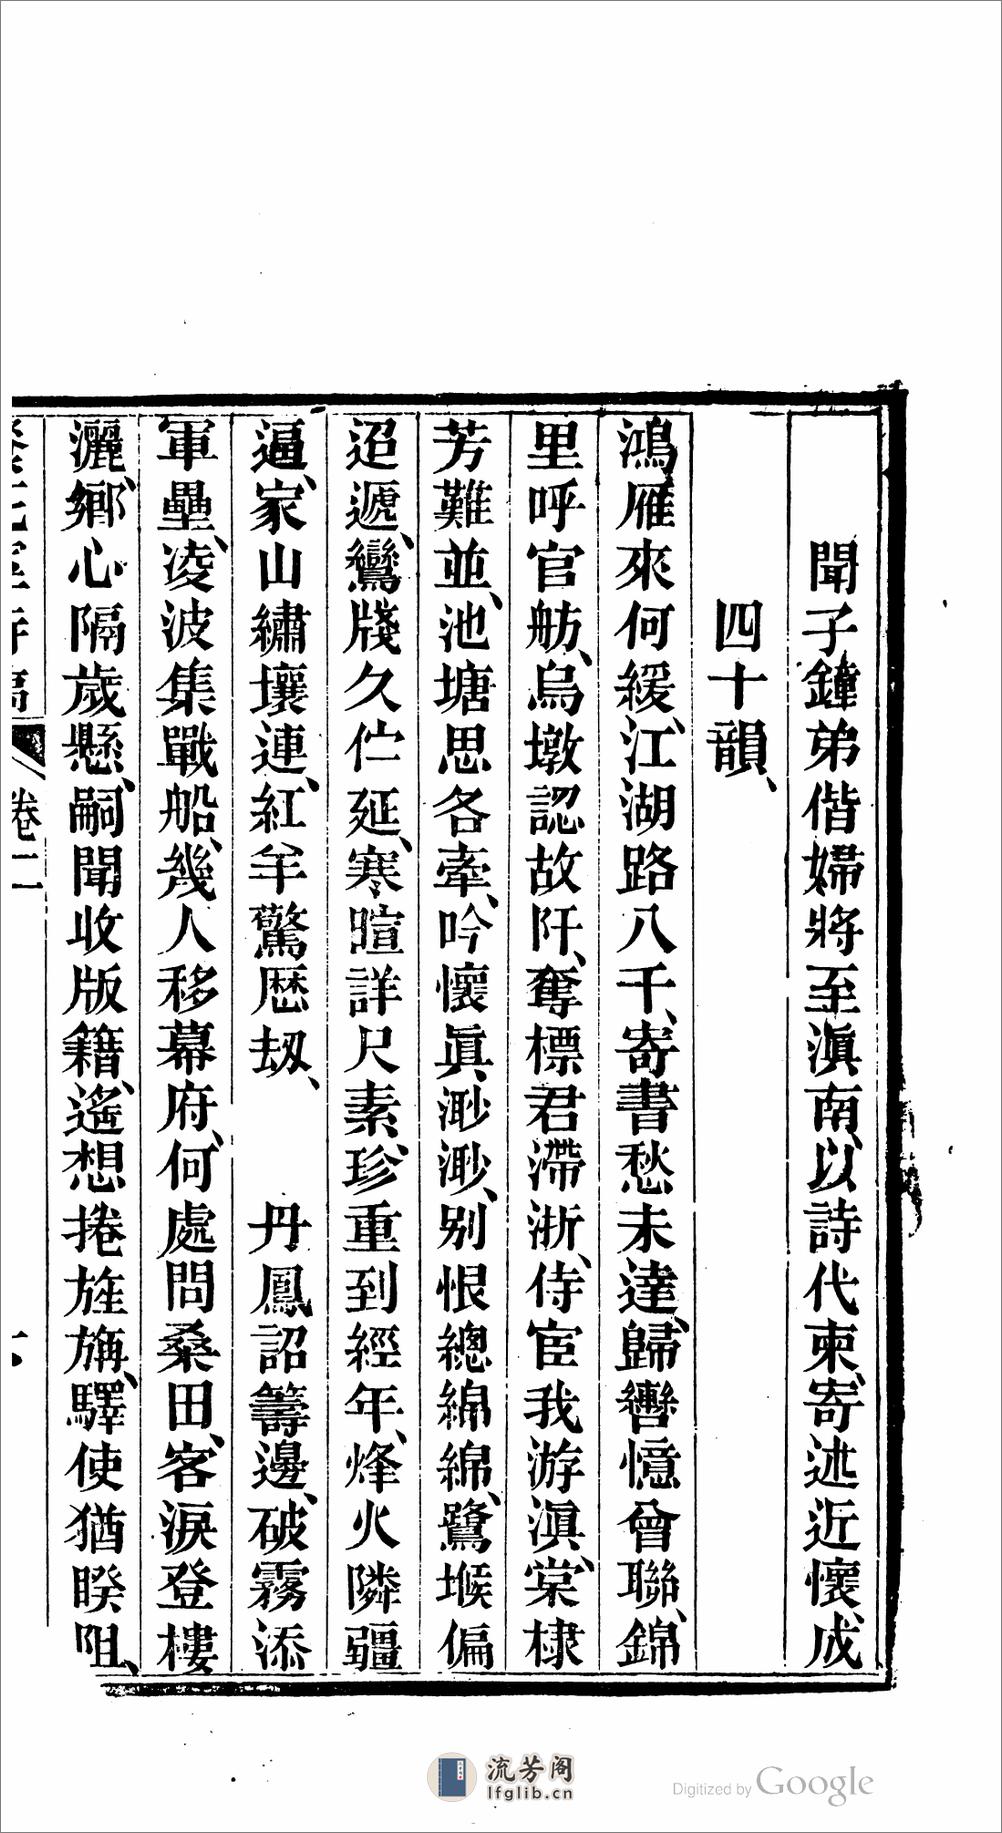 聞子鐘弟偕婦將至滇南、以詩代柬、寄述近懷、成
四十韻、
鴻雁來何緩、江湖路八千、寄書愁未達、歸轡憶曾聯、錦
里呼官舫、烏墩認故阡、奪標君滯浙、侍宦我游滇、棠棣
芳難並、池塘思各牽、吟懷眞渺渺、別恨總綿綿、鷺堠偏
迢遞、鸞牋久伫延、寒暄詳尺素、珍重到經年、烽火隣疆
逼、家山繡壤連、紅羊驚歷劫、丹鳳詔籌邊、破霧添
軍壘、凌波集戰船、幾人移幕府、何處問桑田、客淚登樓
灑、鄉心隔歲懸、嗣聞收版籍、遙想捲旌旃、驛使猶睽阻、
卷二
流芳阁
lfglib.cn
Digitized by Google